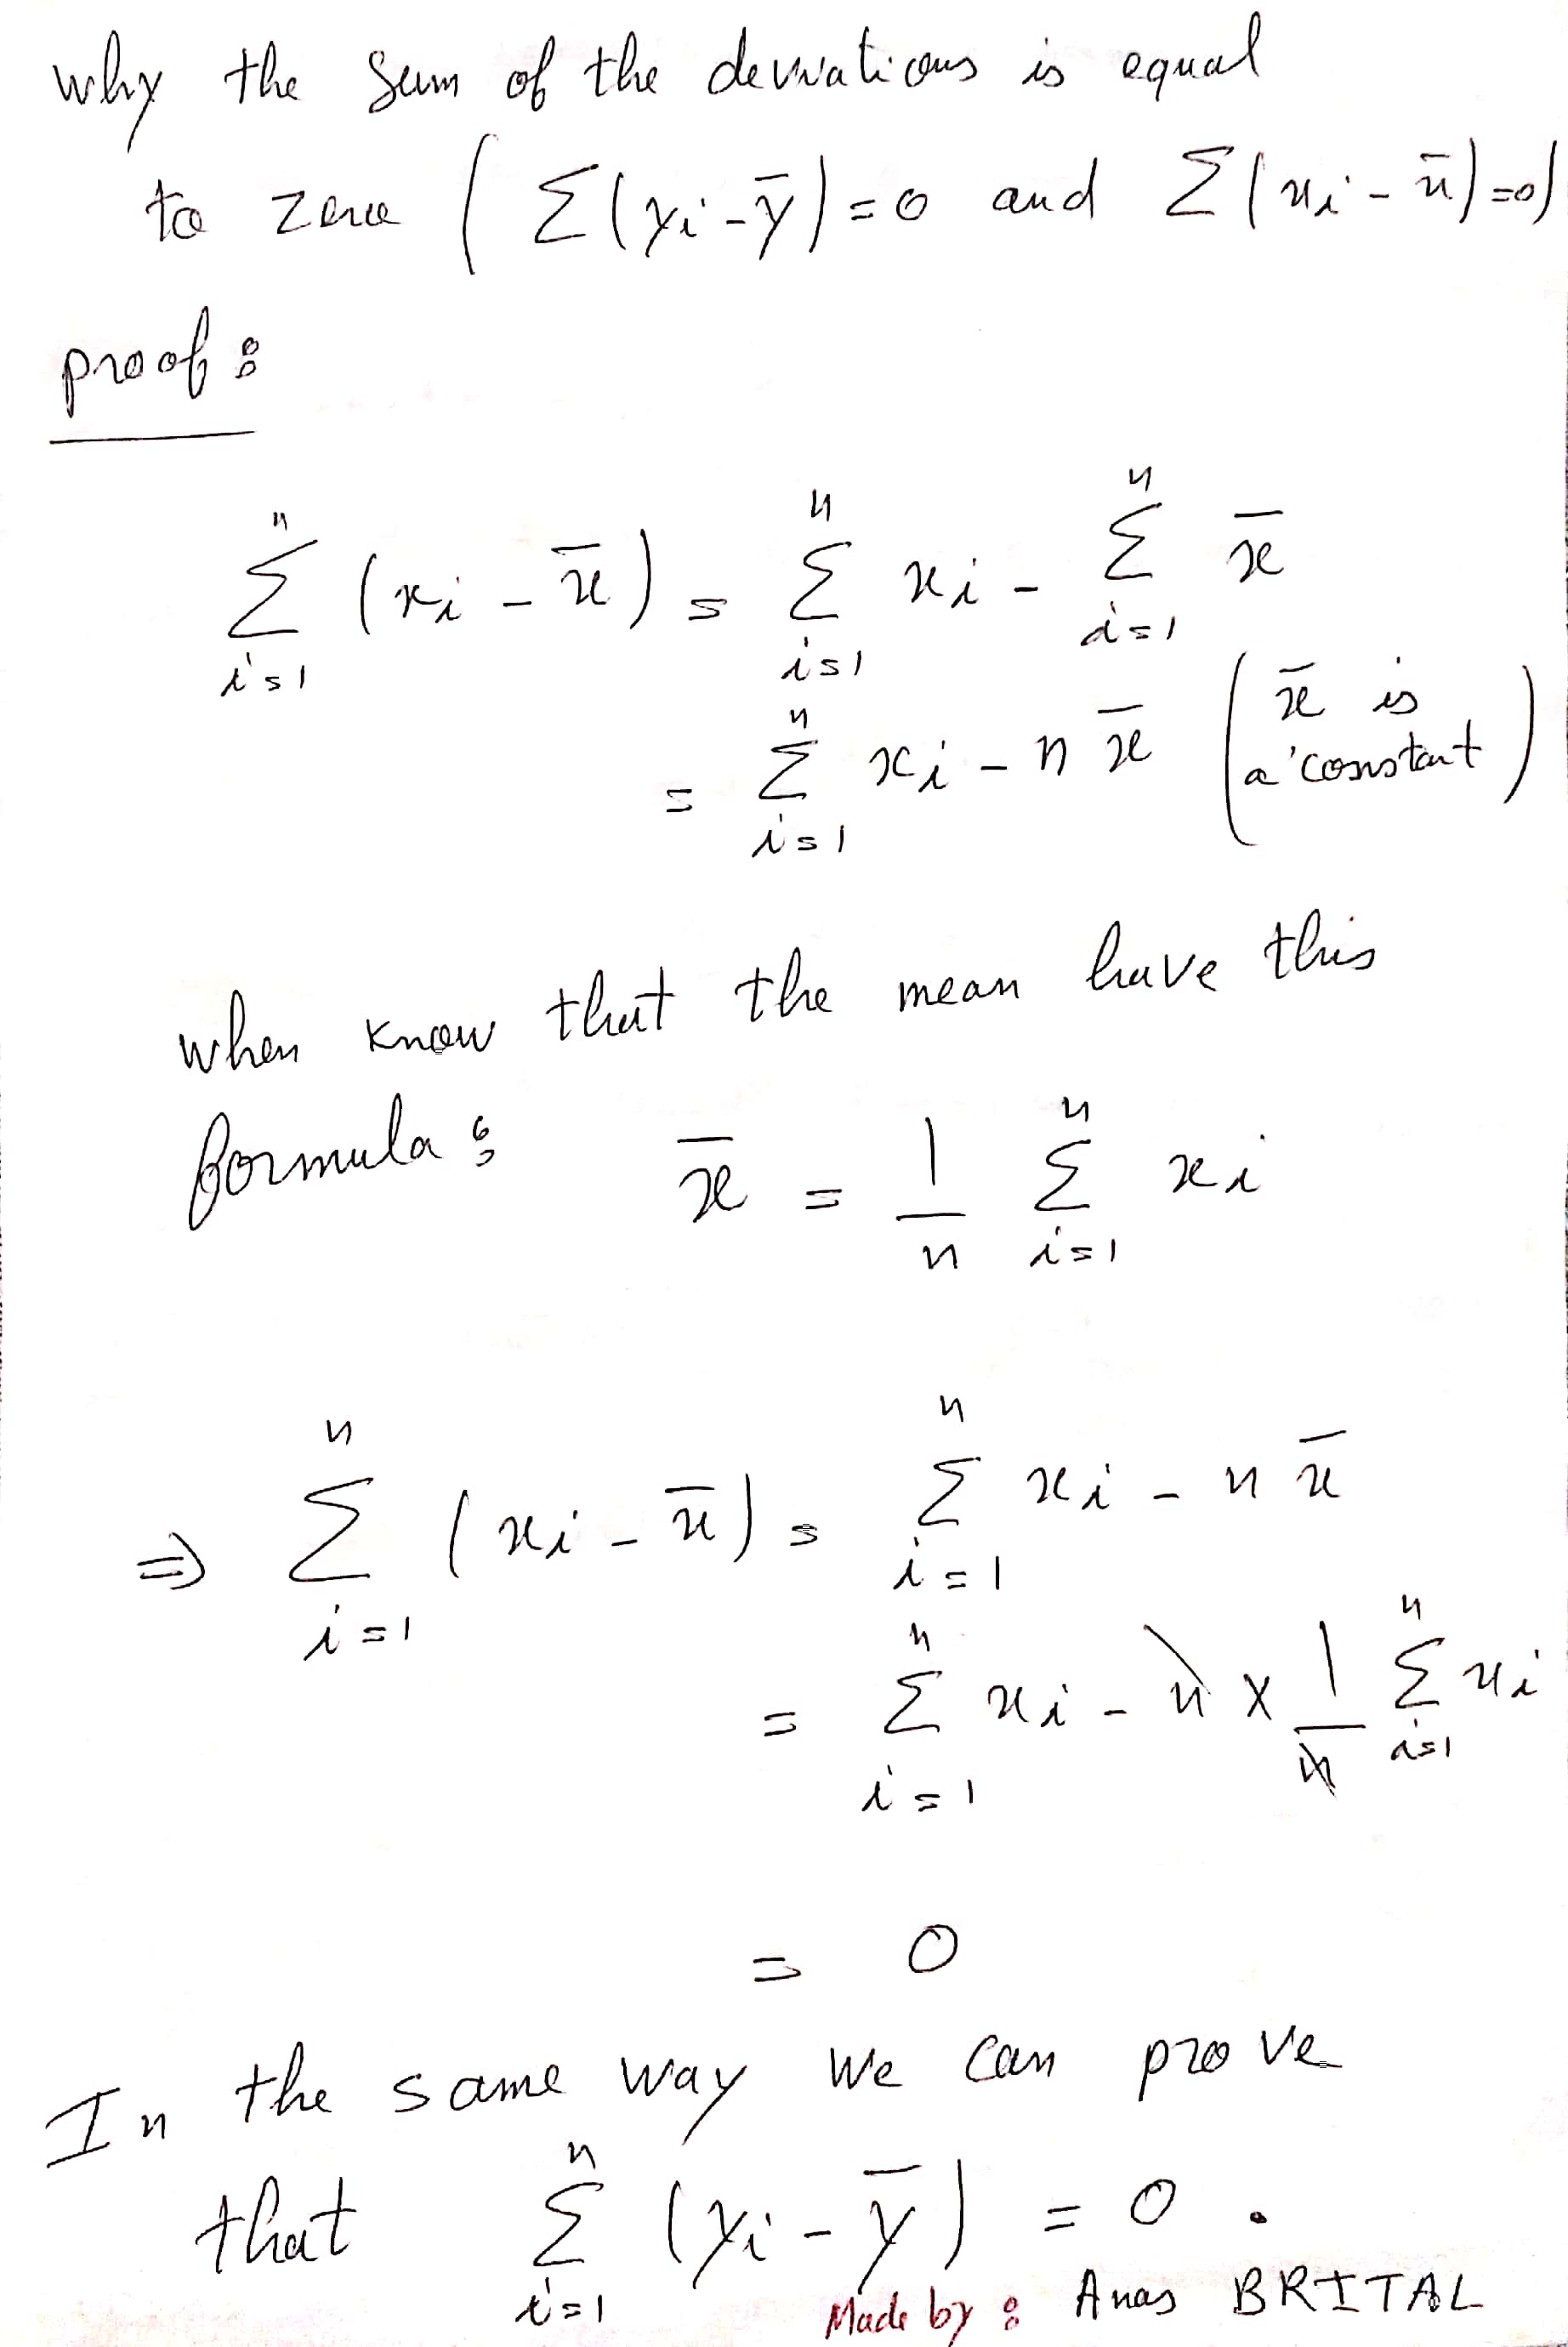 why the sum of the deviations is equal
to zero ( Σ(yi - ȳ) = 0 and Σ(xi - x̄) = 0)
proof :
n Σ i=1 (xi - x̄) = n Σ i=1 xi - n Σ i=1 x̄
= n Σ i=1 xi - n x̄ (x̄ is a constant)
when know that the mean have this
formula : x̄ = 1/n n Σ i=1 xi
⇒ n Σ i=1 (xi - x̄) = n Σ i=1 xi - n x̄
= n Σ i=1 xi - n × 1/n n Σ i=1 xi
= 0
In the same way we can prove
that n Σ i=1 (yi - ȳ) = 0 .
Made by : Anas BRITAL